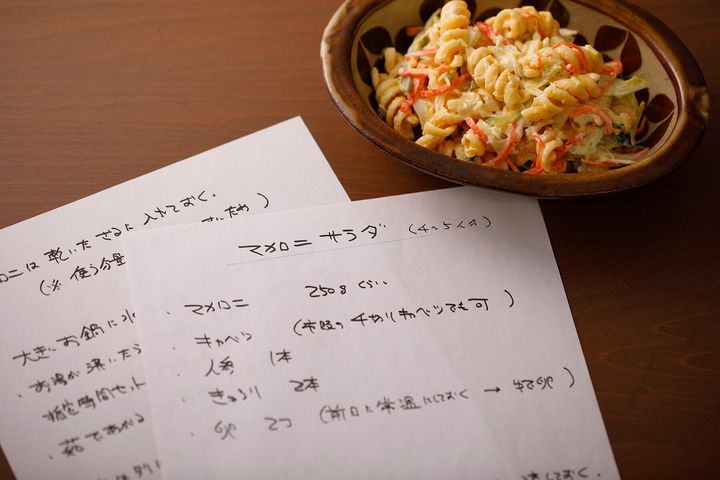 マカロニ サラダ (4~5人分)
・ マカロニ 250gくらい
・ キャベツ (市販の千切りキャベツでも可)
・ 人参 1本
・ きゅうり 2本
・ 卵 2コ (前日に常温にしておく → ゆで卵)
ておく。
ロニは乾いたざるに入れておく。
(※ 使う分量
大きいお鍋に水
・お湯が沸いたら
指定時間セット
・茹であがる